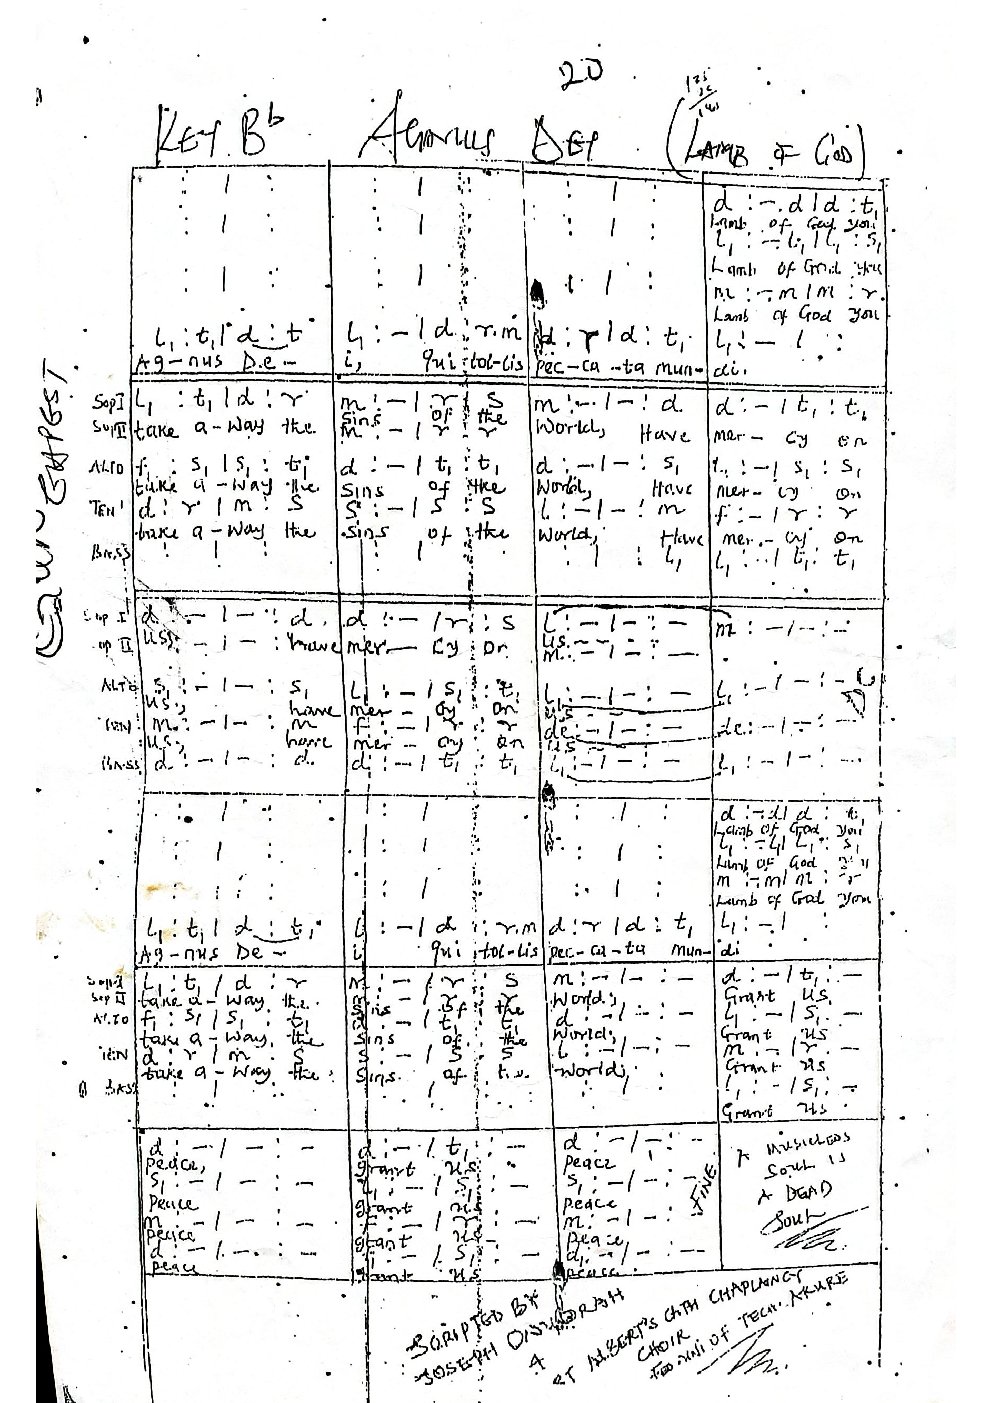 20
KEY Bb AGNUS DEI (LAMB OF GOD)
: | : : | : : | : d :-.d | d : t,
Lamb of God you
: | : : | : : | : l, :-.l, | l, : s,
Lamb of God you
: | : : | : : | : m :-.m | m : r
Lamb of God you
l, : t, | d : t l, : - | d : r.m d : r | d : t, l, : - | :
Ag-nus De- i, qui tol-lis pec-ca-ta mun- di.
Sop I l, : t, | d : r m : - | r : s m : - | - : d d : - | t, : t,
take a-way the sins of the World, Have mer- cy on
Sop II m : - | r : r
ALTO f, : s, | s, : t, d : - | t, : t, d : - | - : s, l, : - | s, : s,
take a-way the sins of the World, Have mer- cy on
TEN d : r | m : s s : - | s : s l : - | - : m f : - | r : r
take a-way the sins of the World, Have mer- cy on
Bass : | : : | : : | : l, l, : - | t, : t,
Sop I d : - | - : d d : - | r : s l : - | - : - m : - | - : -
us, have mer- cy on us
Sop II m : - | - : -
ALTO s, : - | - : s, l, : - | s, : t, l, : - | - : - l, : - | - : -
us, have mer- cy on us
TEN m : - | - : m f : - | r : r de : - | - : - de : - | - : -
us, have mer- cy on us
Bass d : - | - : d d : - | t, : t, l, : - | - : - l, : - | - : -
DC
: | : : | : : | : d :-.d | d : t,
Lamb of God you
: | : : | : : | : l, :-.l, | l, : s,
Lamb of God you
: | : : | : : | : m :-.m | m : r
Lamb of God you
l, : t, | d : t, l, : - | d : r.m d : r | d : t, l, : - | :
Ag-nus De- i qui tol-lis pec-ca-ta mun- di
Sop I l, : t, | d : r m : - | r : s m : - | - : - d : - | t, : -
Sop II take a-way the sins of the World, Grant us
ALTO f, : s, | s, : t, d : - | t, : t, d : - | - : - l, : - | s, : -
take a-way the sins of the World, Grant us
TEN d : r | m : s s : - | s : s l : - | - : - m : - | r : -
take a-way the sins of the World, Grant us
BASS l, : - | s, : -
Grant us
d : - | - : - d : - | t, : - d : - | - : -
peace, grant us peace
s, : - | - : - l, : - | s, : - s, : - | - : -
peace grant us peace
m : - | - : - f : - | r : - m : - | - : -
peace grant us peace,
d : - | - : - : - | s, : - d, : - | - : -
peace grant us peace
FINE
A MUSICLESS
SOUL IS
A DEAD
SOUL
SCRIPTED BY
JOSEPH
ST ALBERT'S CATH CHAPLANCY
CHOIR
FED. UNI OF TECH. AKURE